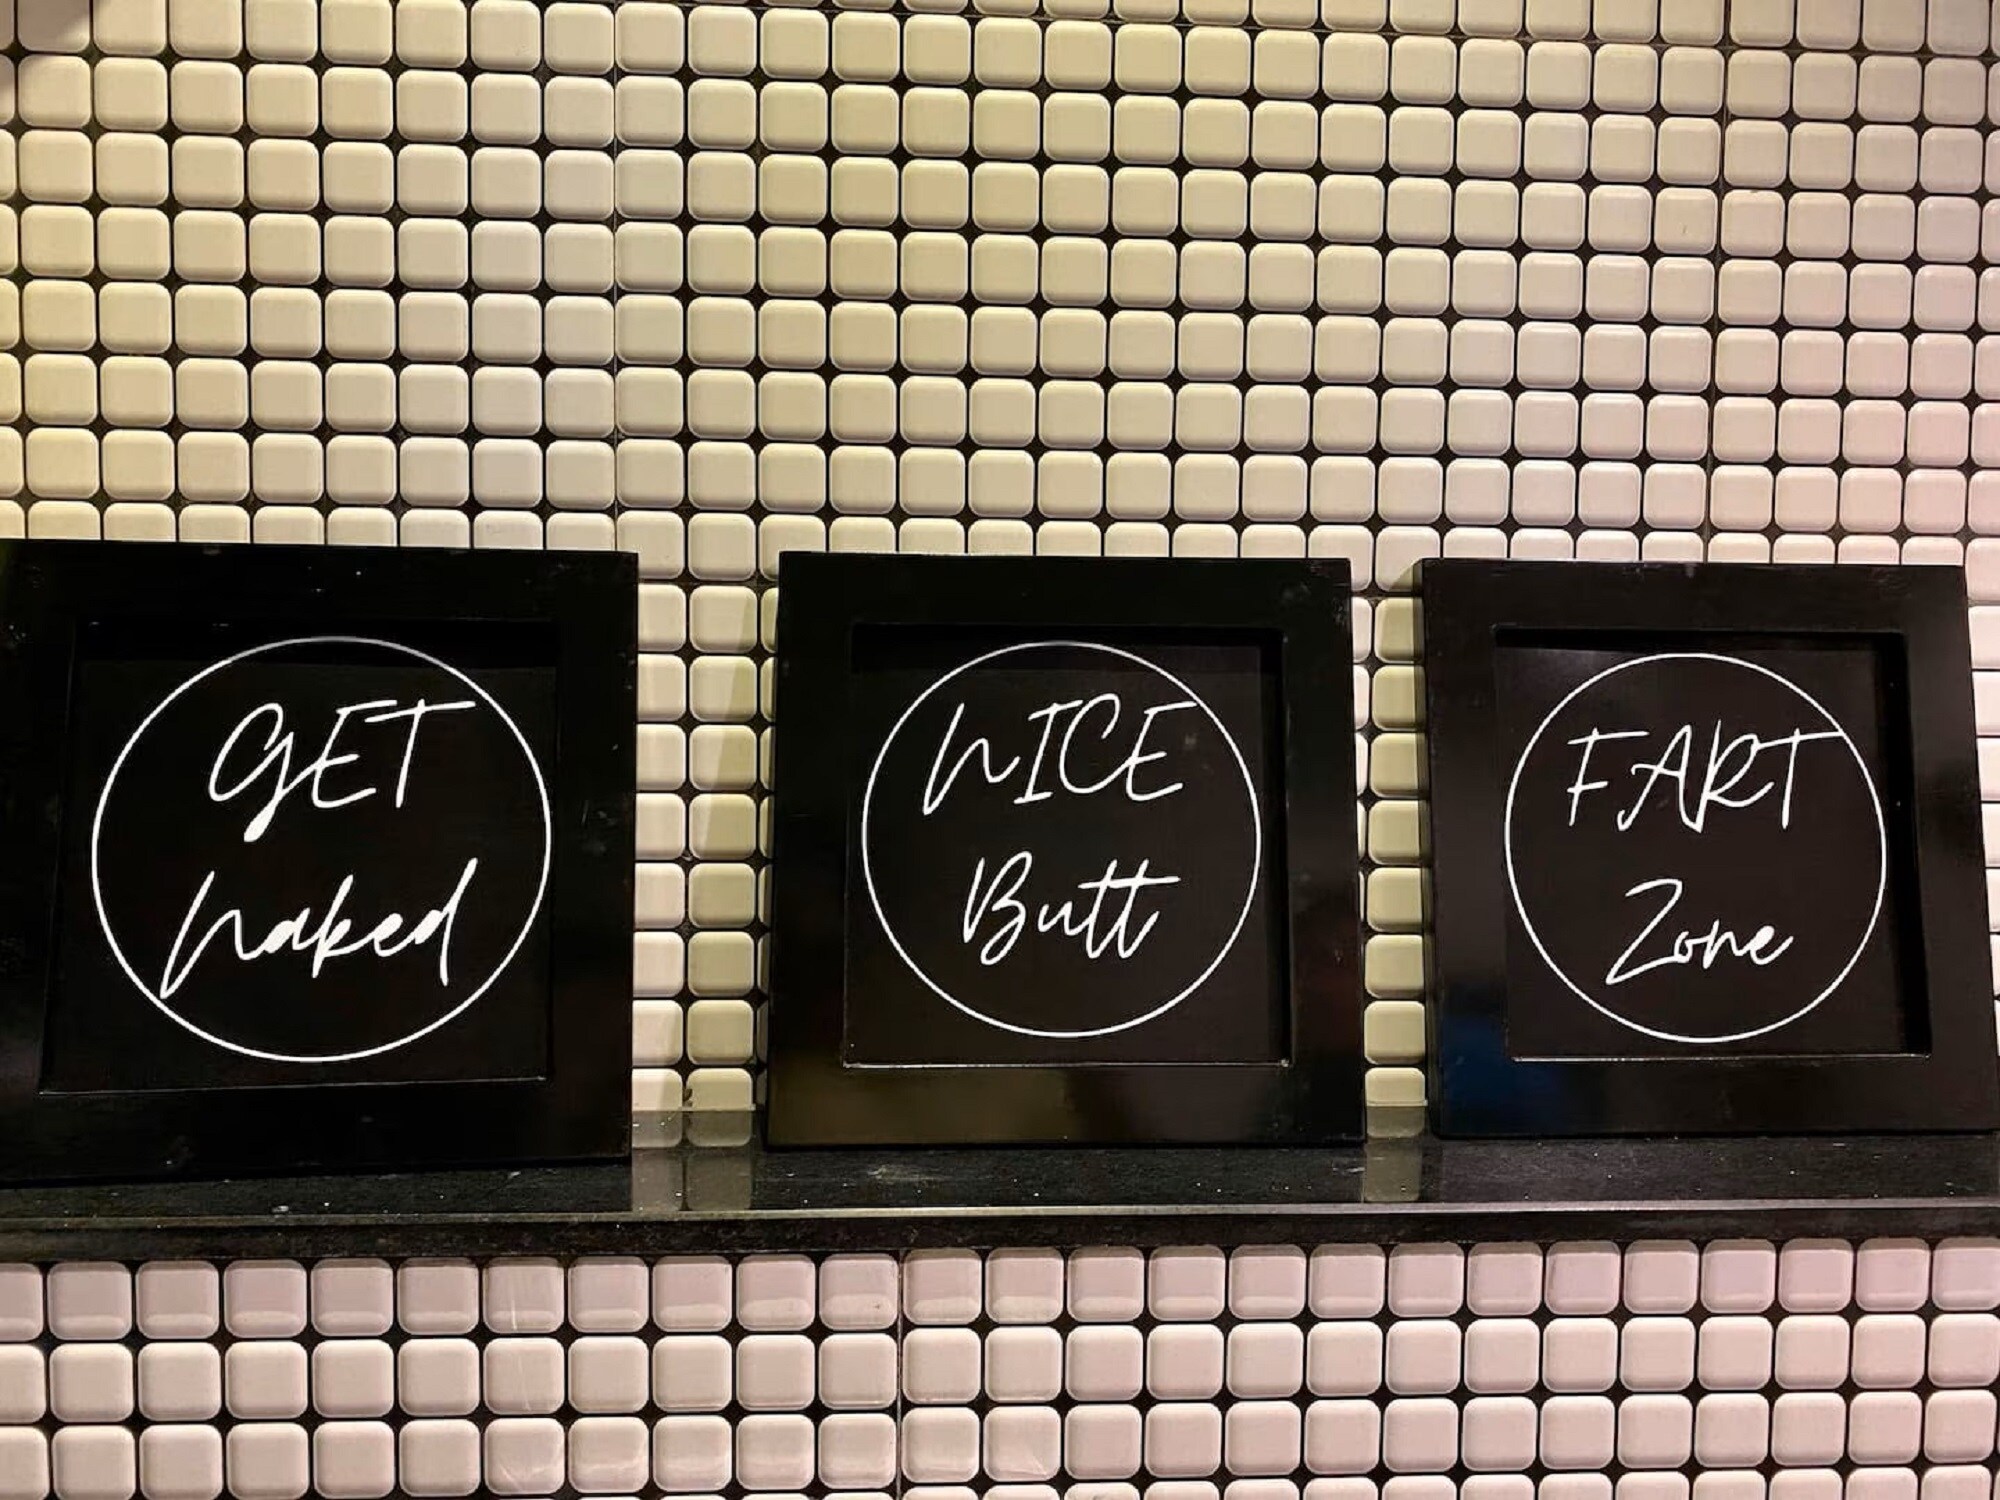 GET
naked
NICE
Butt
FART
Zone